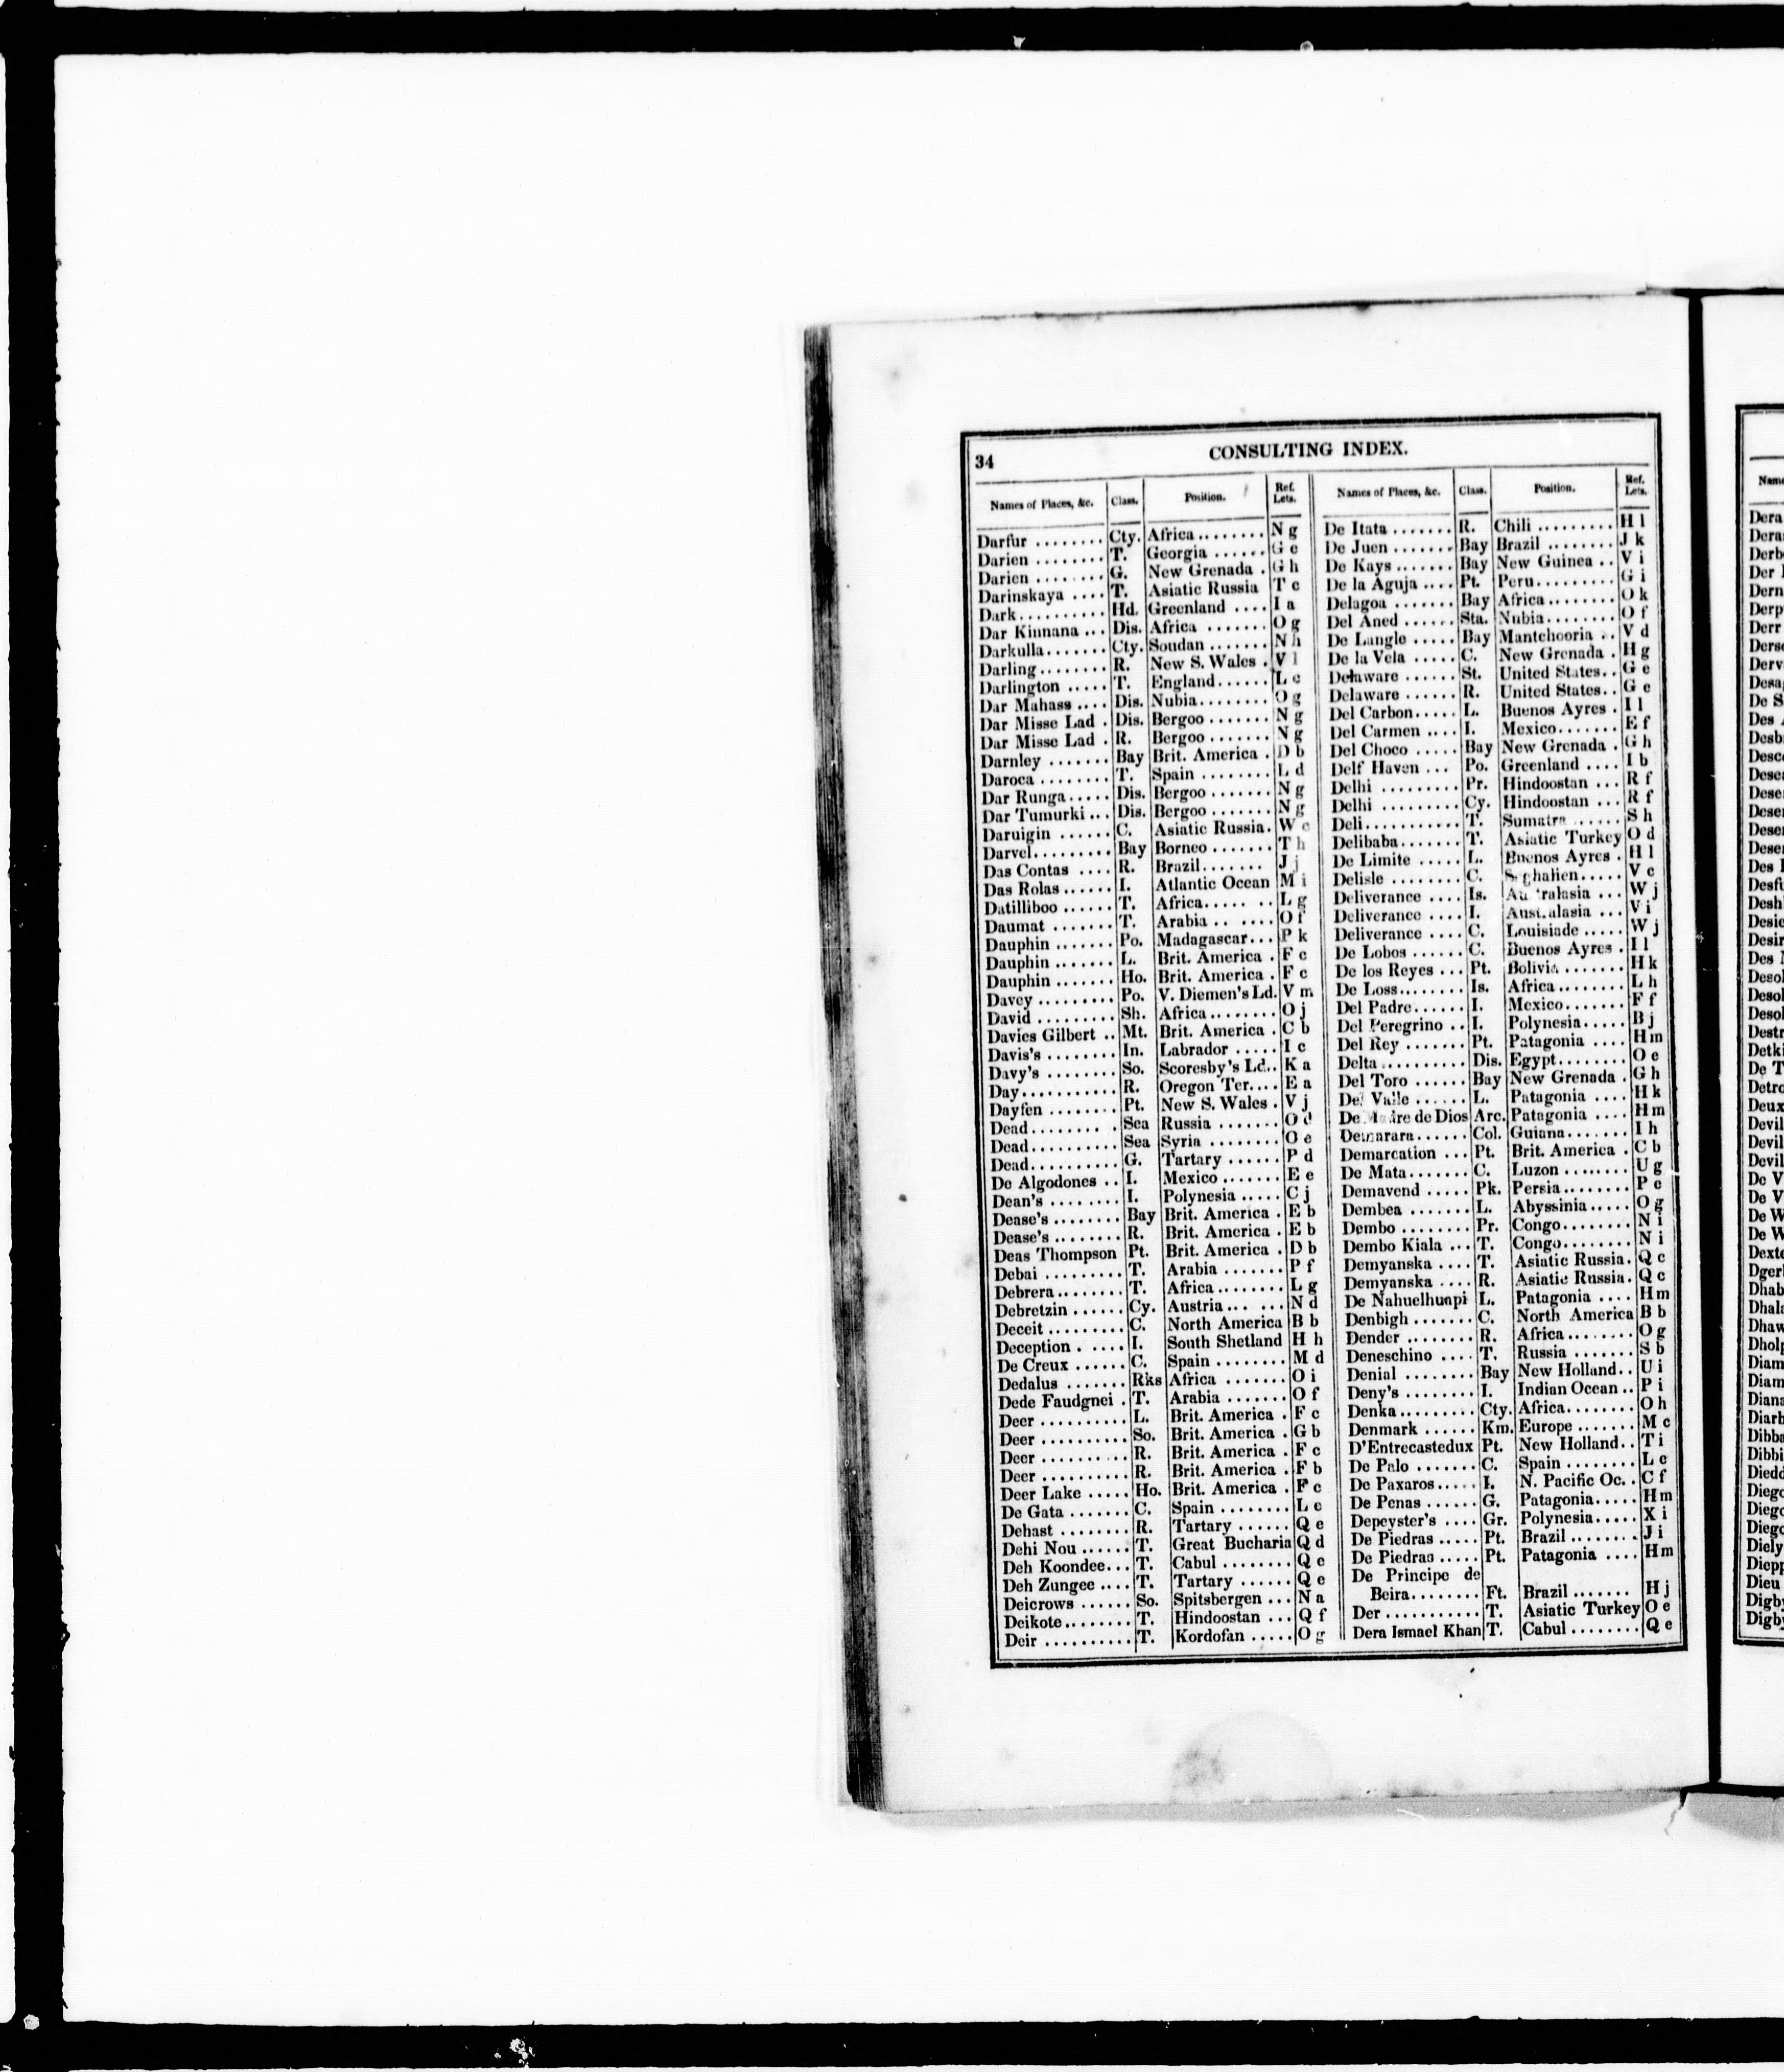 34
CONSULTING INDEX.
Names of Places, &c. Class. Position. Ref. Lets.
Darfur ........ Cty. Africa ........ N g
Darien ........ T. Georgia ...... G e
Darien ........ G. New Grenada . G h
Darinskaya .... T. Asiatic Russia T c
Dark ........ Hd. Greenland .... I a
Dar Kinnana ... Dis. Africa ....... O g
Darkulla ....... Cty. Soudan ....... N h
Darling ........ R. New S. Wales . V l
Darlington ..... T. England ...... L c
Dar Mahass .... Dis. Nubia ........ O g
Dar Misse Lad . Dis. Bergoo ....... N g
Dar Misse Lad . R. Bergoo ....... N g
Darnley ....... Bay Brit. America . D b
Daroca ........ T. Spain ........ L d
Dar Runga ..... Dis. Bergoo ....... N g
Dar Tumurki ... Dis. Bergoo ....... N g
Daruigin ...... C. Asiatic Russia. W c
Darvel ......... Bay Borneo ....... T h
Das Contas .... R. Brazil ....... J j
Das Rolas ...... I. Atlantic Ocean M i
Datilliboo ...... T. Africa ....... L g
Daumat ....... T. Arabia ...... O f
Dauphin ....... Po. Madagascar ... P k
Dauphin ....... L. Brit. America . F c
Dauphin ....... Ho. Brit. America . F c
Davey ......... Po. V. Diemen's Ld. V m
David ......... Sh. Africa ........ O j
Davies Gilbert .. Mt. Brit. America . C b
Davis's ........ In. Labrador ..... I c
Davy's ........ So. Scoresby's Ld.. K a
Day .......... R. Oregon Ter.... E a
Dayfen ........ Pt. New S. Wales . V j
Dead ......... Sea Russia ....... O d
Dead .......... Sea Syria ........ O e
Dead .......... G. Tartary ...... P d
De Algodones .. I. Mexico ....... E e
Dean's ........ I. Polynesia ..... C j
Dease's ........ Bay Brit. America . E b
Dease's ........ R. Brit. America . E b
Deas Thompson Pt. Brit. America . D b
Debai ......... T. Arabia ....... P f
Debrera ........ T. Africa ........ L g
Debretzin ...... Cy. Austria ...... N d
Deceit ......... C. North America B b
Deception ...... I. South Shetland H h
De Creux ...... C. Spain ........ M d
Dedalus ....... Rks Africa ....... O i
Dede Faudgnei . T. Arabia ....... O f
Deer .......... L. Brit. America . F c
Deer .......... So. Brit. America . G b
Deer .......... R. Brit. America . F c
Deer .......... R. Brit. America . F b
Deer Lake ..... Ho. Brit. America . F c
De Gata ....... C. Spain ........ L e
Dehast ........ R. Tartary ...... Q e
Dehi Nou ...... T. Great Bucharia Q d
Deh Koondee ... T. Cabul ........ Q e
Deh Zungee .... T. Tartary ...... Q e
Deicrows ...... So. Spitsbergen ... N a
Deikote ........ T. Hindoostan ... Q f
Deir .......... T. Kordofan ..... O g
Names of Places, &c. Class. Position. Ref. Lets.
De Itata ....... R. Chili ......... H l
De Juen ....... Bay Brazil ........ J k
De Kays ....... Bay New Guinea .. V i
De la Aguja .... Pt. Peru ......... G i
Delagoa ....... Bay Africa ........ O k
Del Aned ...... Sta. Nubia ........ O f
De Langle ..... Bay Mantchooria .. V d
De la Vela ..... C. New Grenada . H g
Delaware ...... St. United States.. G e
Delaware ...... R. United States.. G e
Del Carbon ..... L. Buenos Ayres . I l
Del Carmen .... I. Mexico ....... E f
Del Choco ..... Bay New Grenada . G h
Delf Haven ... Po. Greenland .... I b
Delhi ......... Pr. Hindoostan ... R f
Delhi ......... Cy. Hindoostan ... R f
Deli ........... T. Sumatra ...... S h
Delibaba ....... T. Asiatic Turkey O d
De Limite ..... L. Buenos Ayres . H l
Delisle ........ C. Seghalien ..... V c
Deliverance .... Is. Australasia ... W j
Deliverance .... I. Australasia ... V i
Deliverance .... C. Louisiade ..... W j
De Lobos ...... C. Buenos Ayres . I l
De los Reyes ... Pt. Bolivia ....... H k
De Loss ........ Is. Africa ........ L h
Del Padre ...... I. Mexico ....... F f
Del Peregrino .. I. Polynesia ..... B j
Del Rey ....... Pt. Patagonia .... H m
Delta .......... Dis. Egypt ........ O e
Del Toro ...... Bay New Grenada . G h
Del Valle ...... L. Patagonia .... H k
De Madre de Dios Arc. Patagonia .... H m
Demarara ...... Col. Guiana ....... I h
Demarcation ... Pt. Brit. America . C b
De Mata ....... C. Luzon ........ U g
Demavend ..... Pk. Persia ........ P e
Dembea ....... L. Abyssinia ..... O g
Dembo ........ Pr. Congo ........ N i
Dembo Kiala ... T. Congo ........ N i
Demyanska .... T. Asiatic Russia. Q c
Demyanska .... R. Asiatic Russia. Q c
De Nahuelhuapi L. Patagonia .... H m
Denbigh ....... C. North America B b
Dender ........ R. Africa ........ O g
Deneschino .... T. Russia ....... S b
Denial ........ Bay New Holland .. U i
Deny's ........ I. Indian Ocean .. P i
Denka ......... Cty. Africa ........ O h
Denmark ...... Km. Europe ....... M c
D'Entrecastedux Pt. New Holland .. T i
De Palo ....... C. Spain ........ L e
De Paxaros ..... I. N. Pacific Oc. . C f
De Penas ...... G. Patagonia ..... H m
Depeyster's .... Gr. Polynesia ..... X i
De Piedras ..... Pt. Brazil ........ J i
De Piedras ..... Pt. Patagonia .... H m
De Principe de
Beira ........ Ft. Brazil ....... H j
Der ........... T. Asiatic Turkey O e
Dera Ismael Khan T. Cabul ........ Q e
Dera
Derb
Dern
Derp
Derr
Derv
De S
Desb
Desh
De T
De V
De V
De W
De W
Digb